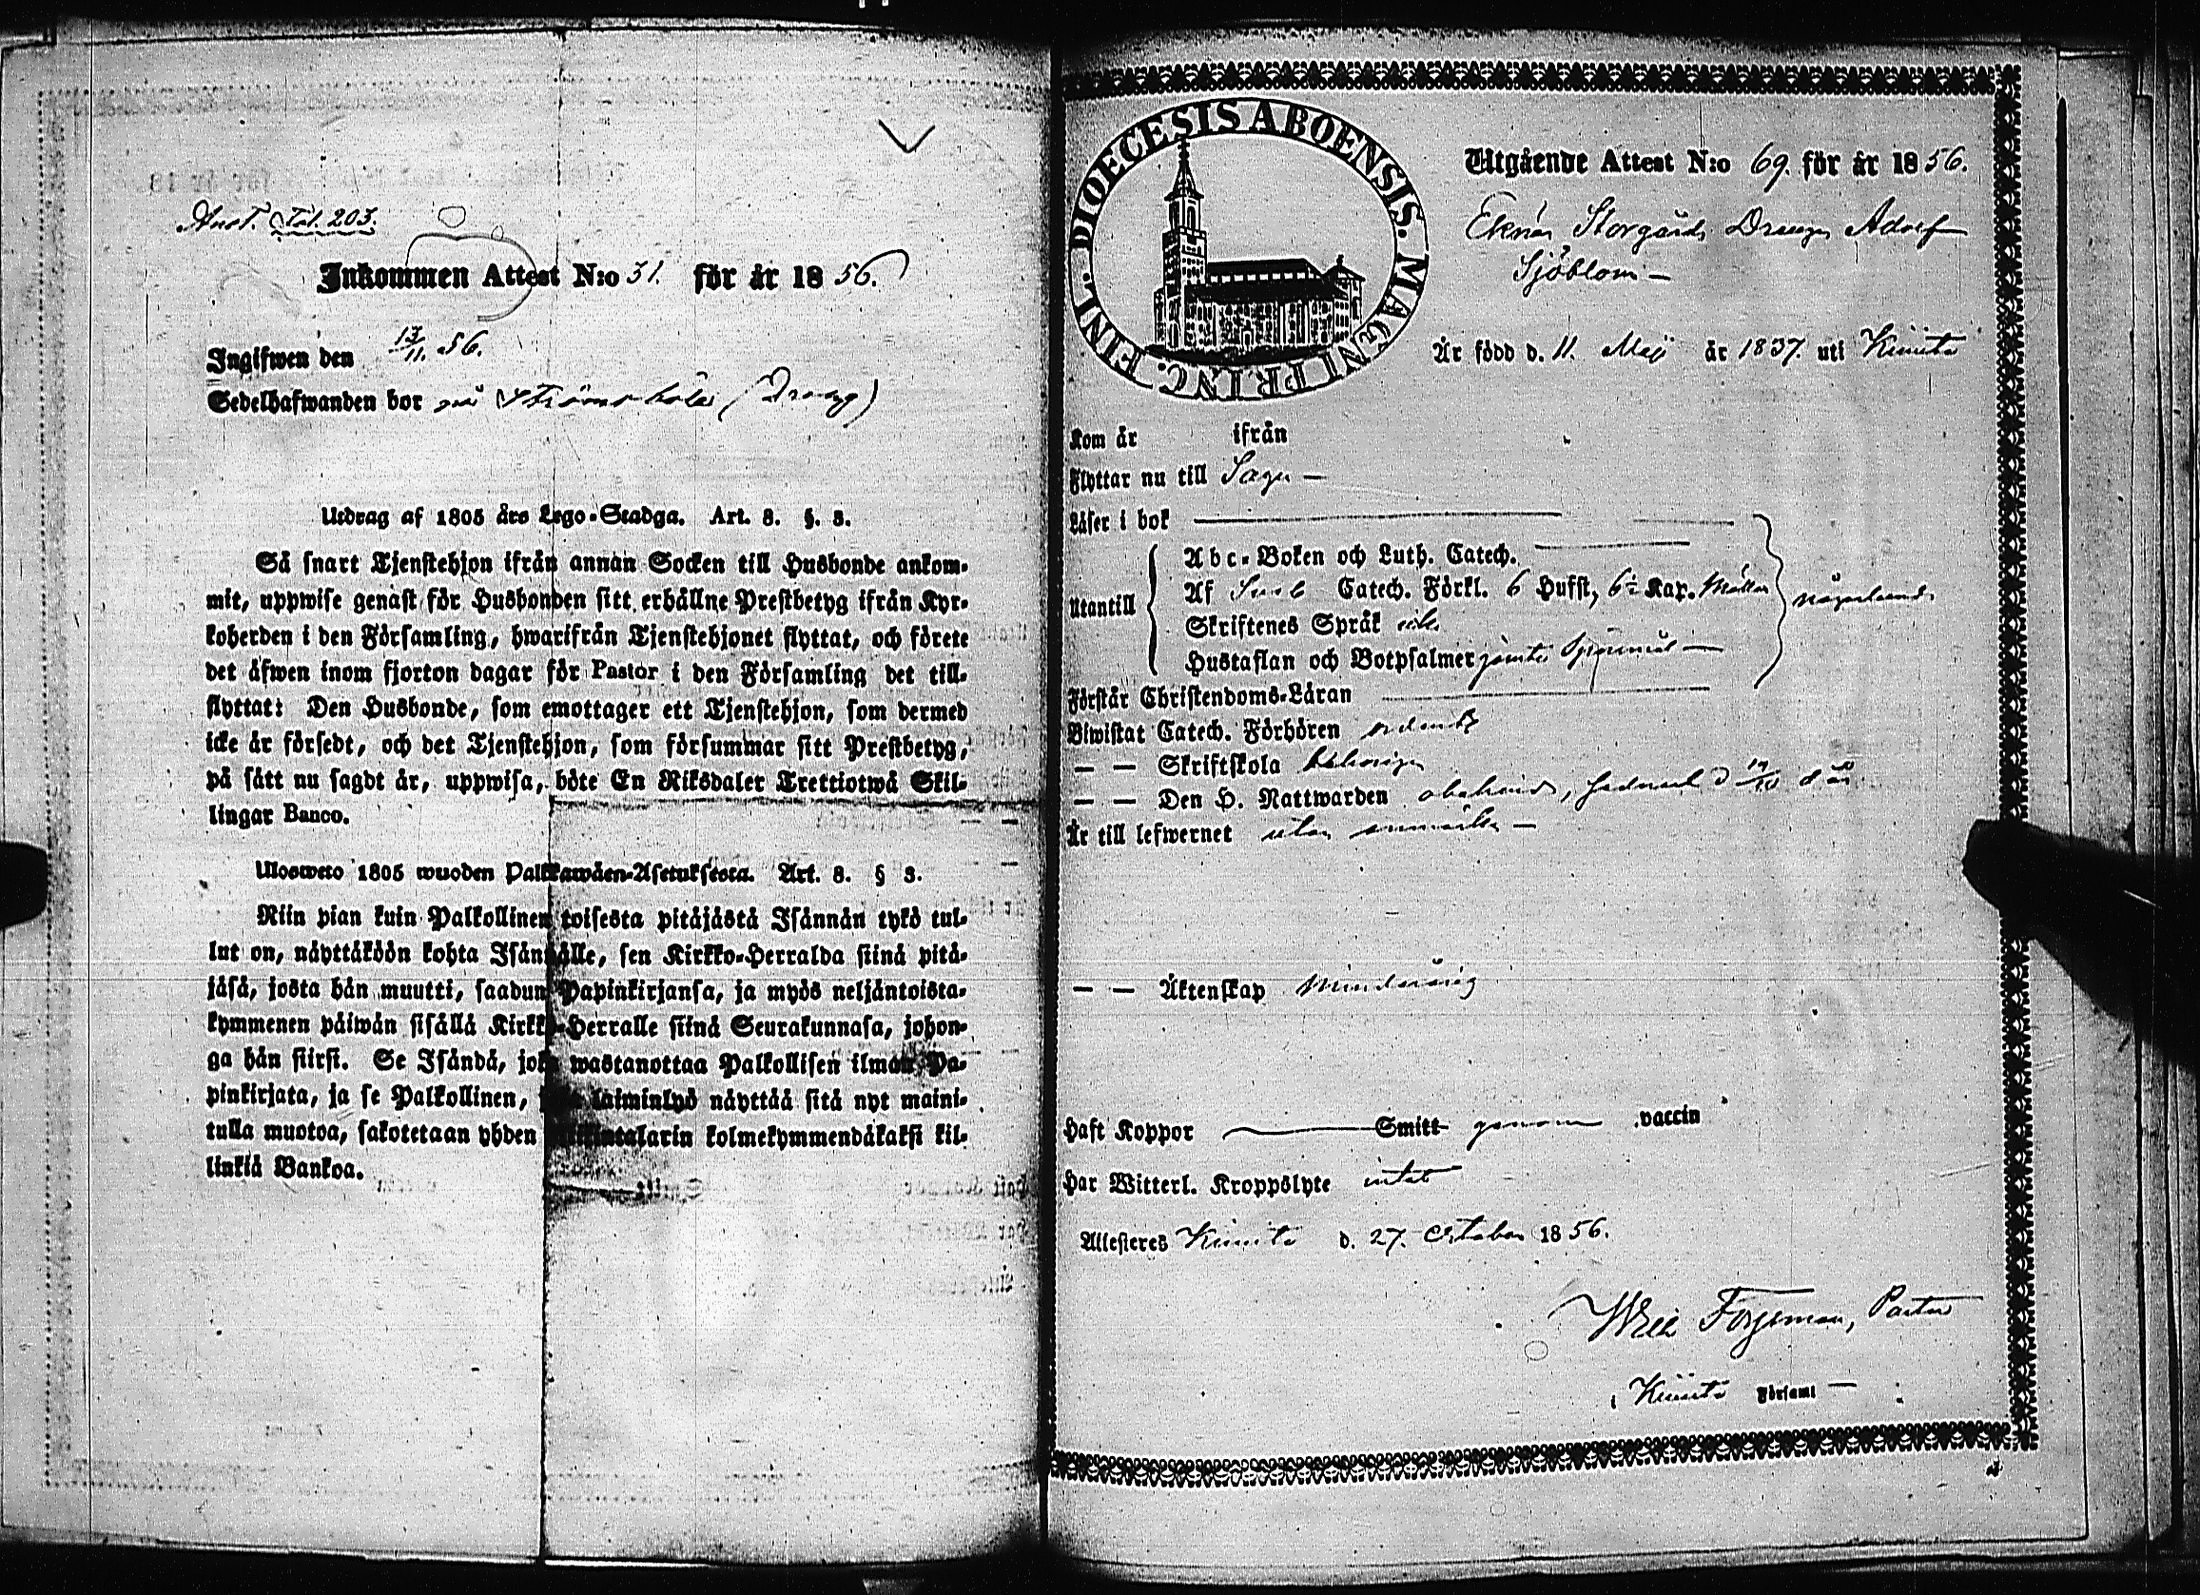 Anot. Fol. 203.
Inkommen Attest N:o 31. för år 1856.
Ingifwen den 17/11. 56.
Sedelhafwanden bor på Strömsholm (Dreng)
Utdrag af 1805 års Lego-Stadga. Art. 8. §. 3.
Så snart Tjenstehjon ifrån annan Socken till Husbonde ankom-
mit, uppwise genast för Husbonden sitt erhållne Prestbetyg ifrån Kyr-
koherden i den Församling, hwarifrån Tjenstehjonet flyttat, och förete
det äfwen inom fjorton dagar för Pastor i den Församling det till-
flyttat: Den Husbonde, som emottager ett Tjenstehjon, som dermed
icke är försedt, och det Tjenstehjon, som försummar sitt Prestbetyg,
på sätt nu sagdt är, uppwisa, böte En Riksdaler Trettiotwå Skil-
lingar Banco.
Ulosweto 1805 wuoden Palkkawäen-Asetuksesta. Art. 8. § 3.
Niin pian kuin Palkollinen toisesta pitäjästä Isännän tykö tul-
lut on, näyttäköön kohta Isännälle, sen Kirkko-Herralda siinä pitä-
jäsä, josta hän muutti, saadun Papinkirjansa, ja myös neljäntoista-
kymmenen päiwän sisällä Kirkko-Herralle siinä Seurakunnasa, johon-
ga hän siirsi. Se Isändä, joka wastanottaa Palkollisen ilman Pa-
pinkirjata, ja se Palkollinen, laiminlyö näyttää sitä nyt maini-
tulla muotoa, sakotetaan yhden Riksintalarin kolmekymmendäkaksi kil-
linkiä Bankoa.
DIOECESIS ABOENSIS. MAGNI PRINC. FINL.
Utgående Attest N:o 69. för år 1856.
Eknäs Storgårds Drengen Adolf
Sjöblom
Är född d. 11. Maji år 1837. uti Kimito
Kom år ifrån
Flyttar nu till Sagu
Läser i bok
Utantill
Abc-Boken och Luth. Catech.
Af Sveb Catech. Förkl. 6 Hufst, 6½ Kap.
Skriftenes Språk
Hustaflan och Botpsalmer jemte Spörsmål
någorlunda
Förstår Christendoms-Läran
Biwistat Catech. Förhören ordentl.
— — Skriftskola behörigen
— — Den H. Nattwarden obehind,
Är till lefwernet utan anmärkn
— — Äktenskap Minderårig
Haft Koppor Smitt genom vaccin
Har Witterl. Kroppslyte intet
Attesteres Kimito d. 27. October 1856.
Forsman, Pastor
i Kimito Församl